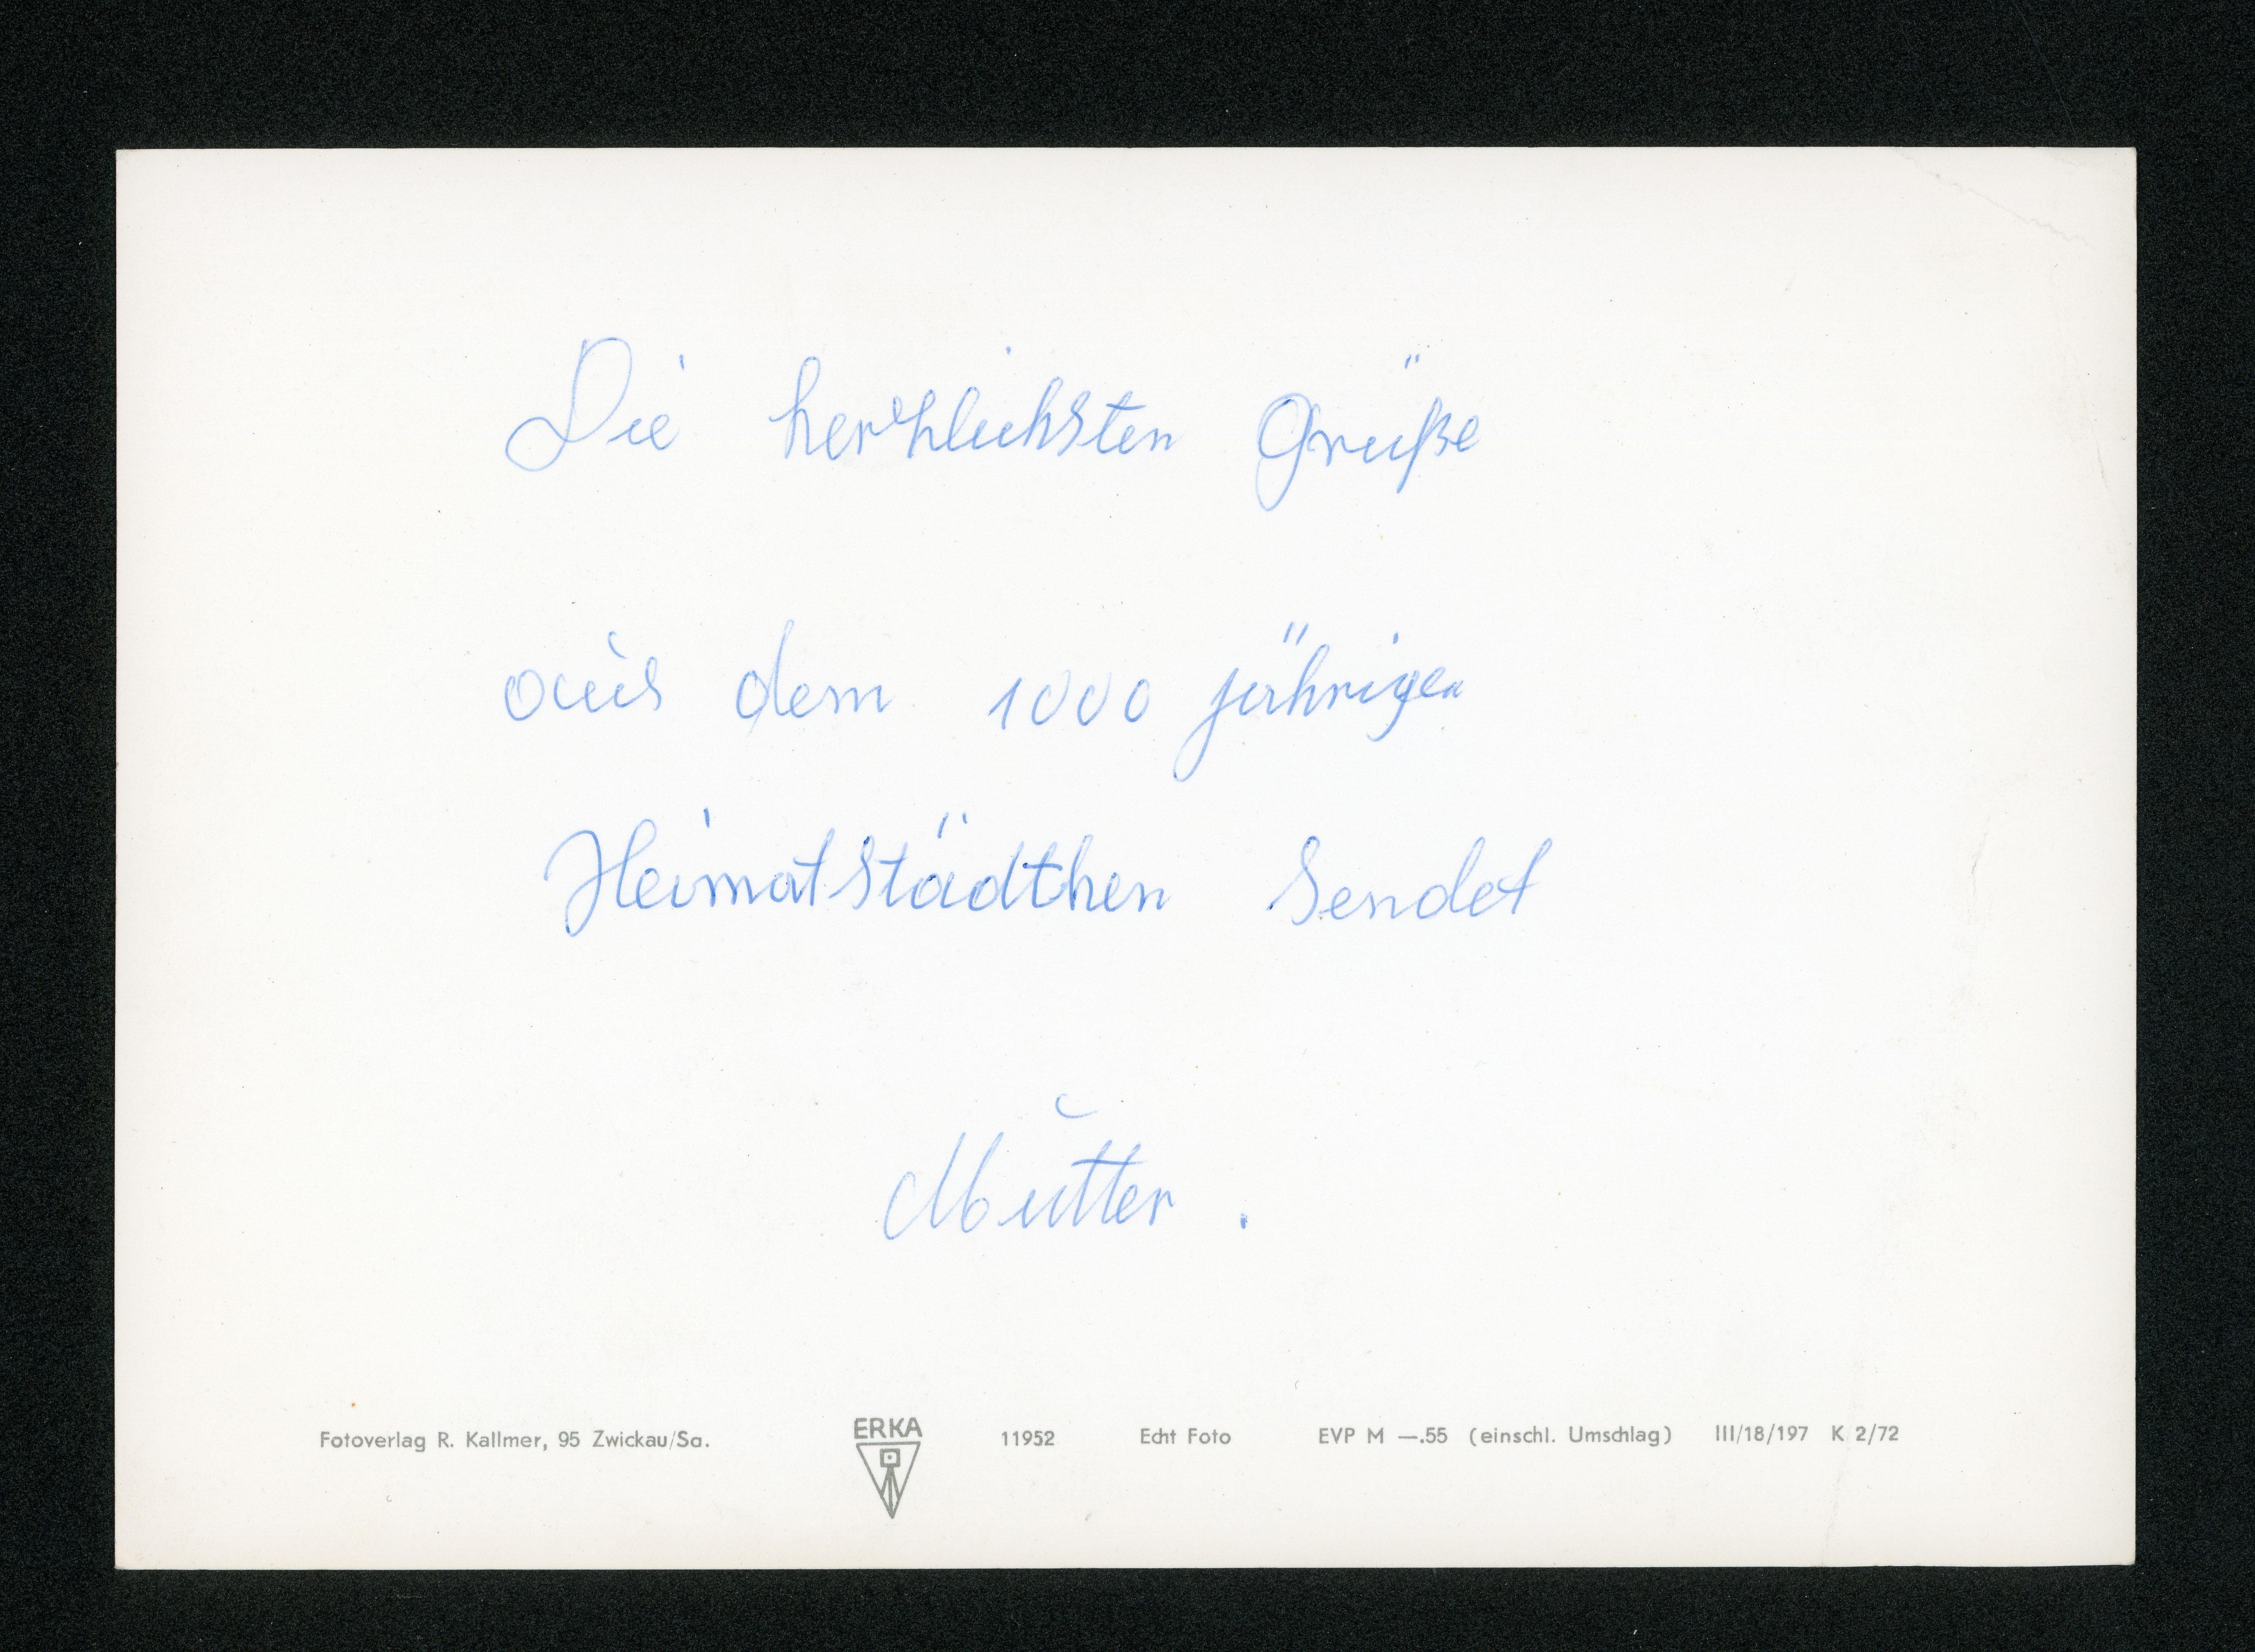 Die herzlichsten Grüße
aus dem 1000 jährigen
Heimatstädthen sendet
Mutter .
Fotoverlag R. Kallmer, 95 Zwickau/Sa. ERKA 11952 Echt Foto EVP M —.55 (einschl. Umschlag) III/18/197 K 2/72